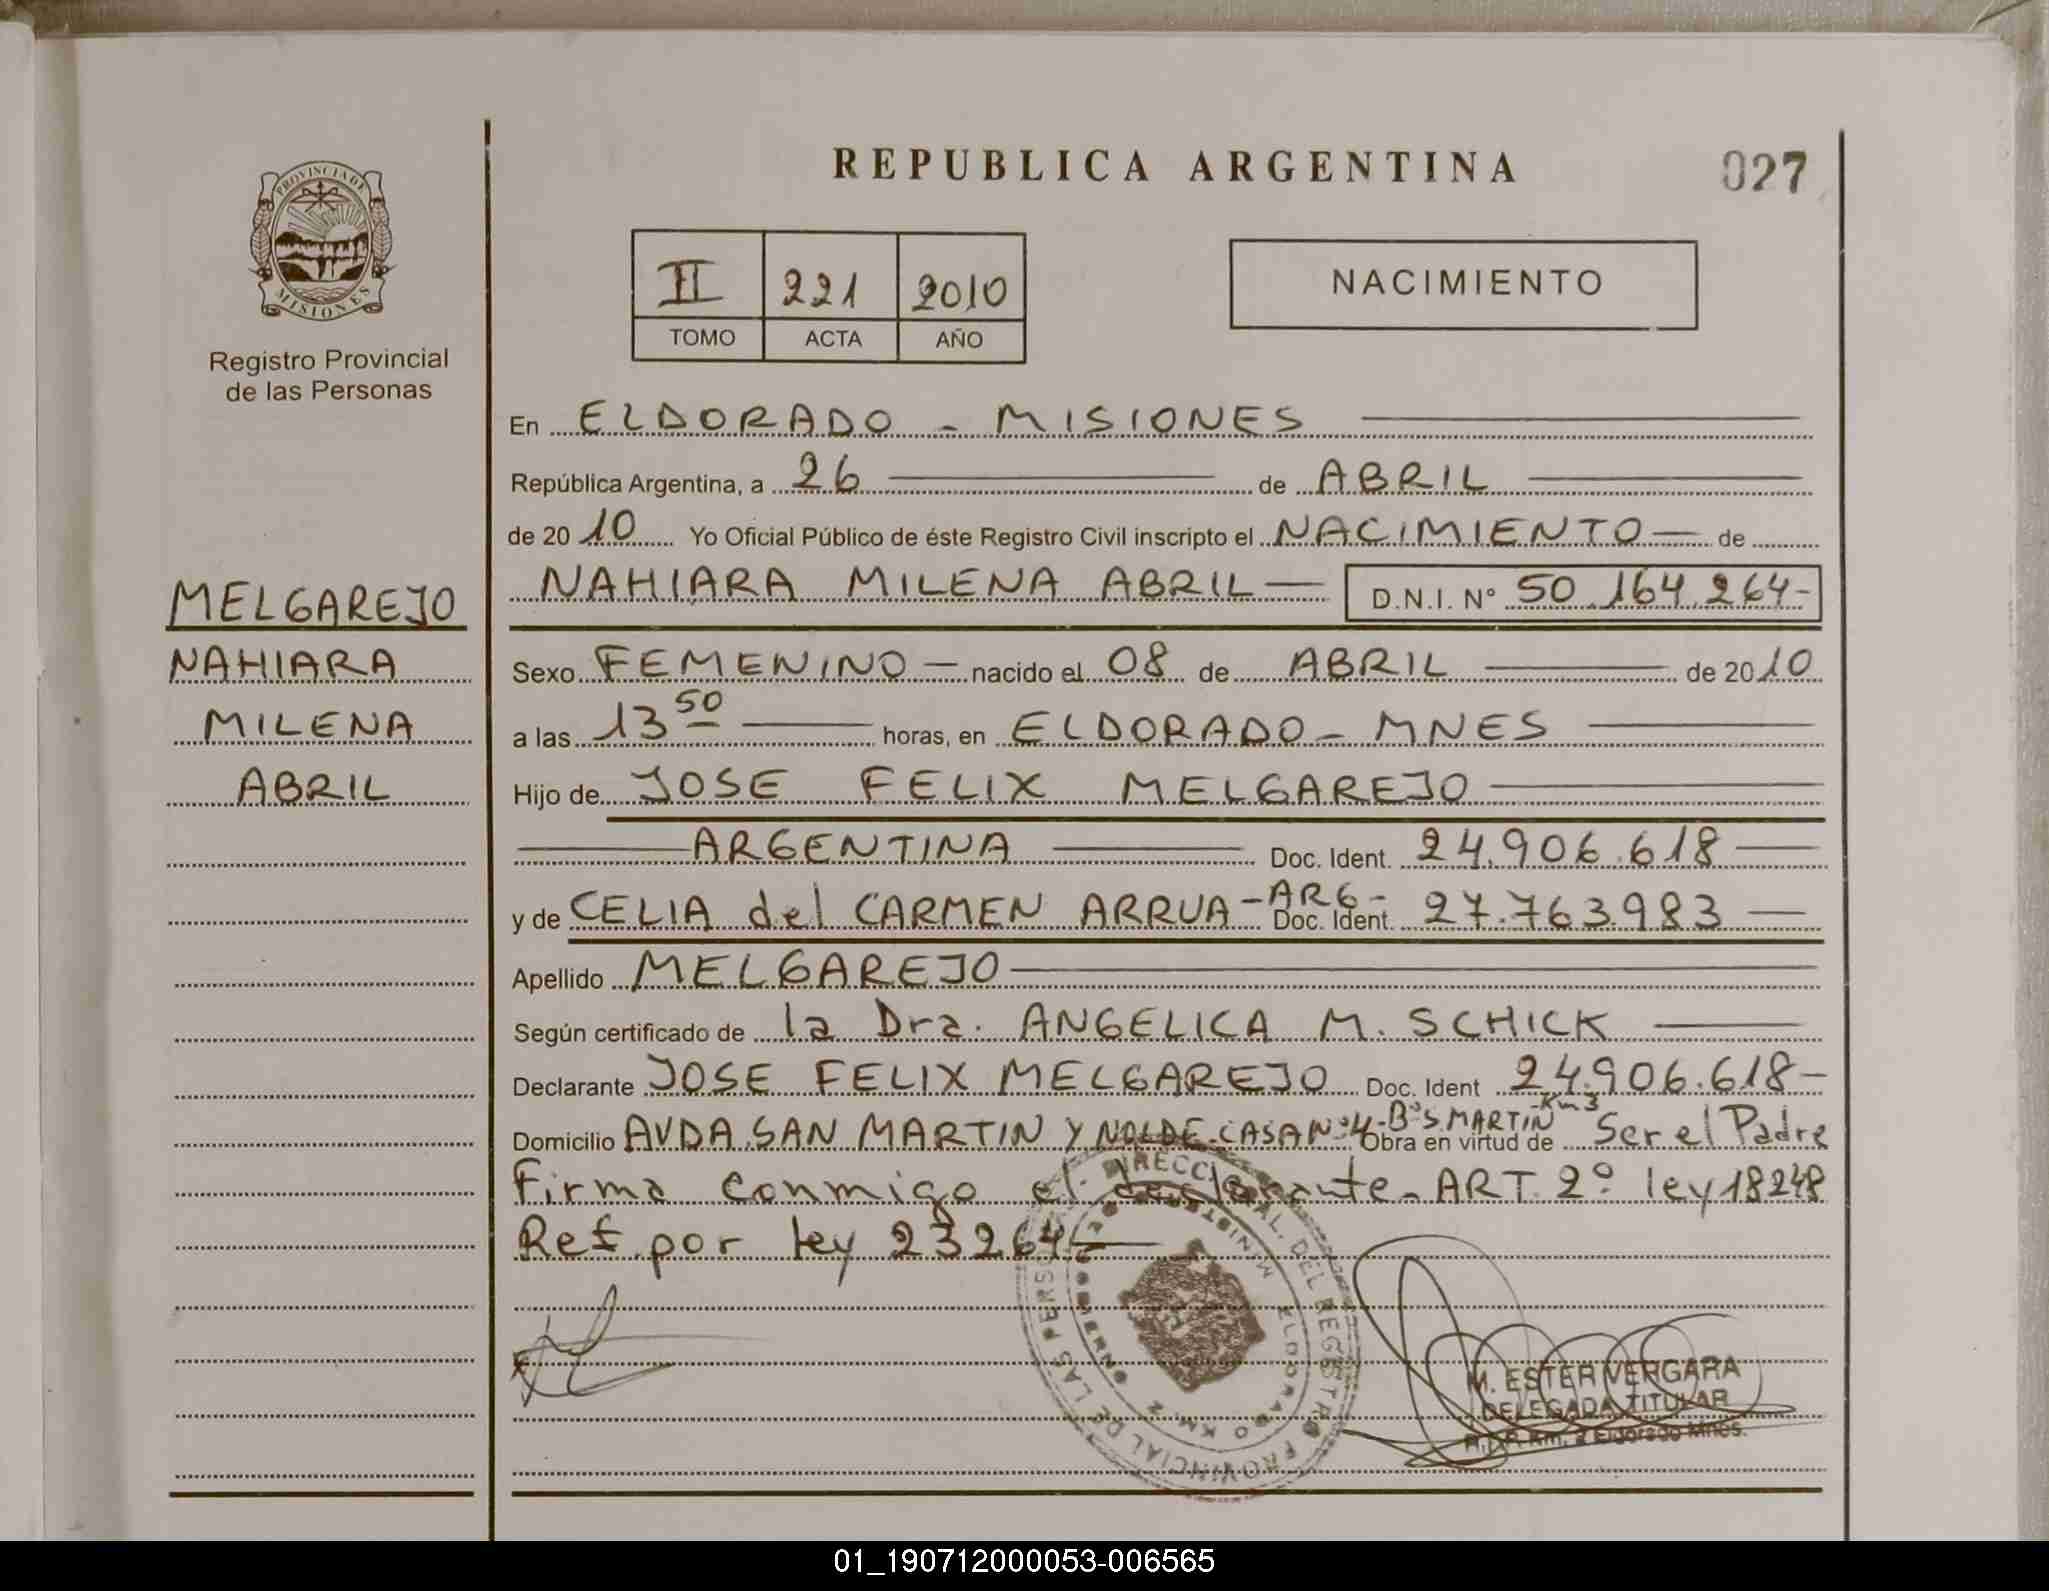 REPUBLICA ARGENTINA
027
PROVINCIA DE
MISIONES
Registro Provincial
de las Personas
II 221 2010
TOMO ACTA AÑO
NACIMIENTO
MELGAREJO
NAHIARA
MILENA
ABRIL
En ELDORADO - MISIONES
República Argentina, a 26 de ABRIL
de 2010 Yo Oficial Público de éste Registro Civil inscripto el NACIMIENTO de
NAHIARA MILENA ABRIL D.N.I. N° 50.164.264-
Sexo FEMENINO nacido el 08 de ABRIL de 2010
a las 13 50 horas, en ELDORADO - MNES
Hijo de JOSE FELIX MELGAREJO
ARGENTINA Doc. Ident. 24.906.618
y de CELIA del CARMEN ARRUA - ARG - Doc. Ident. 27.763.983
Apellido MELGAREJO
Según certificado de la Dra. ANGELICA M. SCHICK
Declarante JOSE FELIX MELGAREJO Doc. Ident 24.906.618-
Domicilio AVDA. SAN MARTIN Y NOLDE-CASA N°4-B°S.MARTIN-Km 3 Obra en virtud de Ser el Padre
Firma conmigo el declarante. ART. 2° ley 18248
Ref. por ley 23264
DIRECC. GRAL. DEL REGISTRO PROVINCIAL DE LAS PERSO
MINISTE
ELDORADO KM. 2
M. ESTER VERGARA
DELEGADA TITULAR
R.P.P. Km. 2 Eldorado Mnes.
01_190712000053-006565